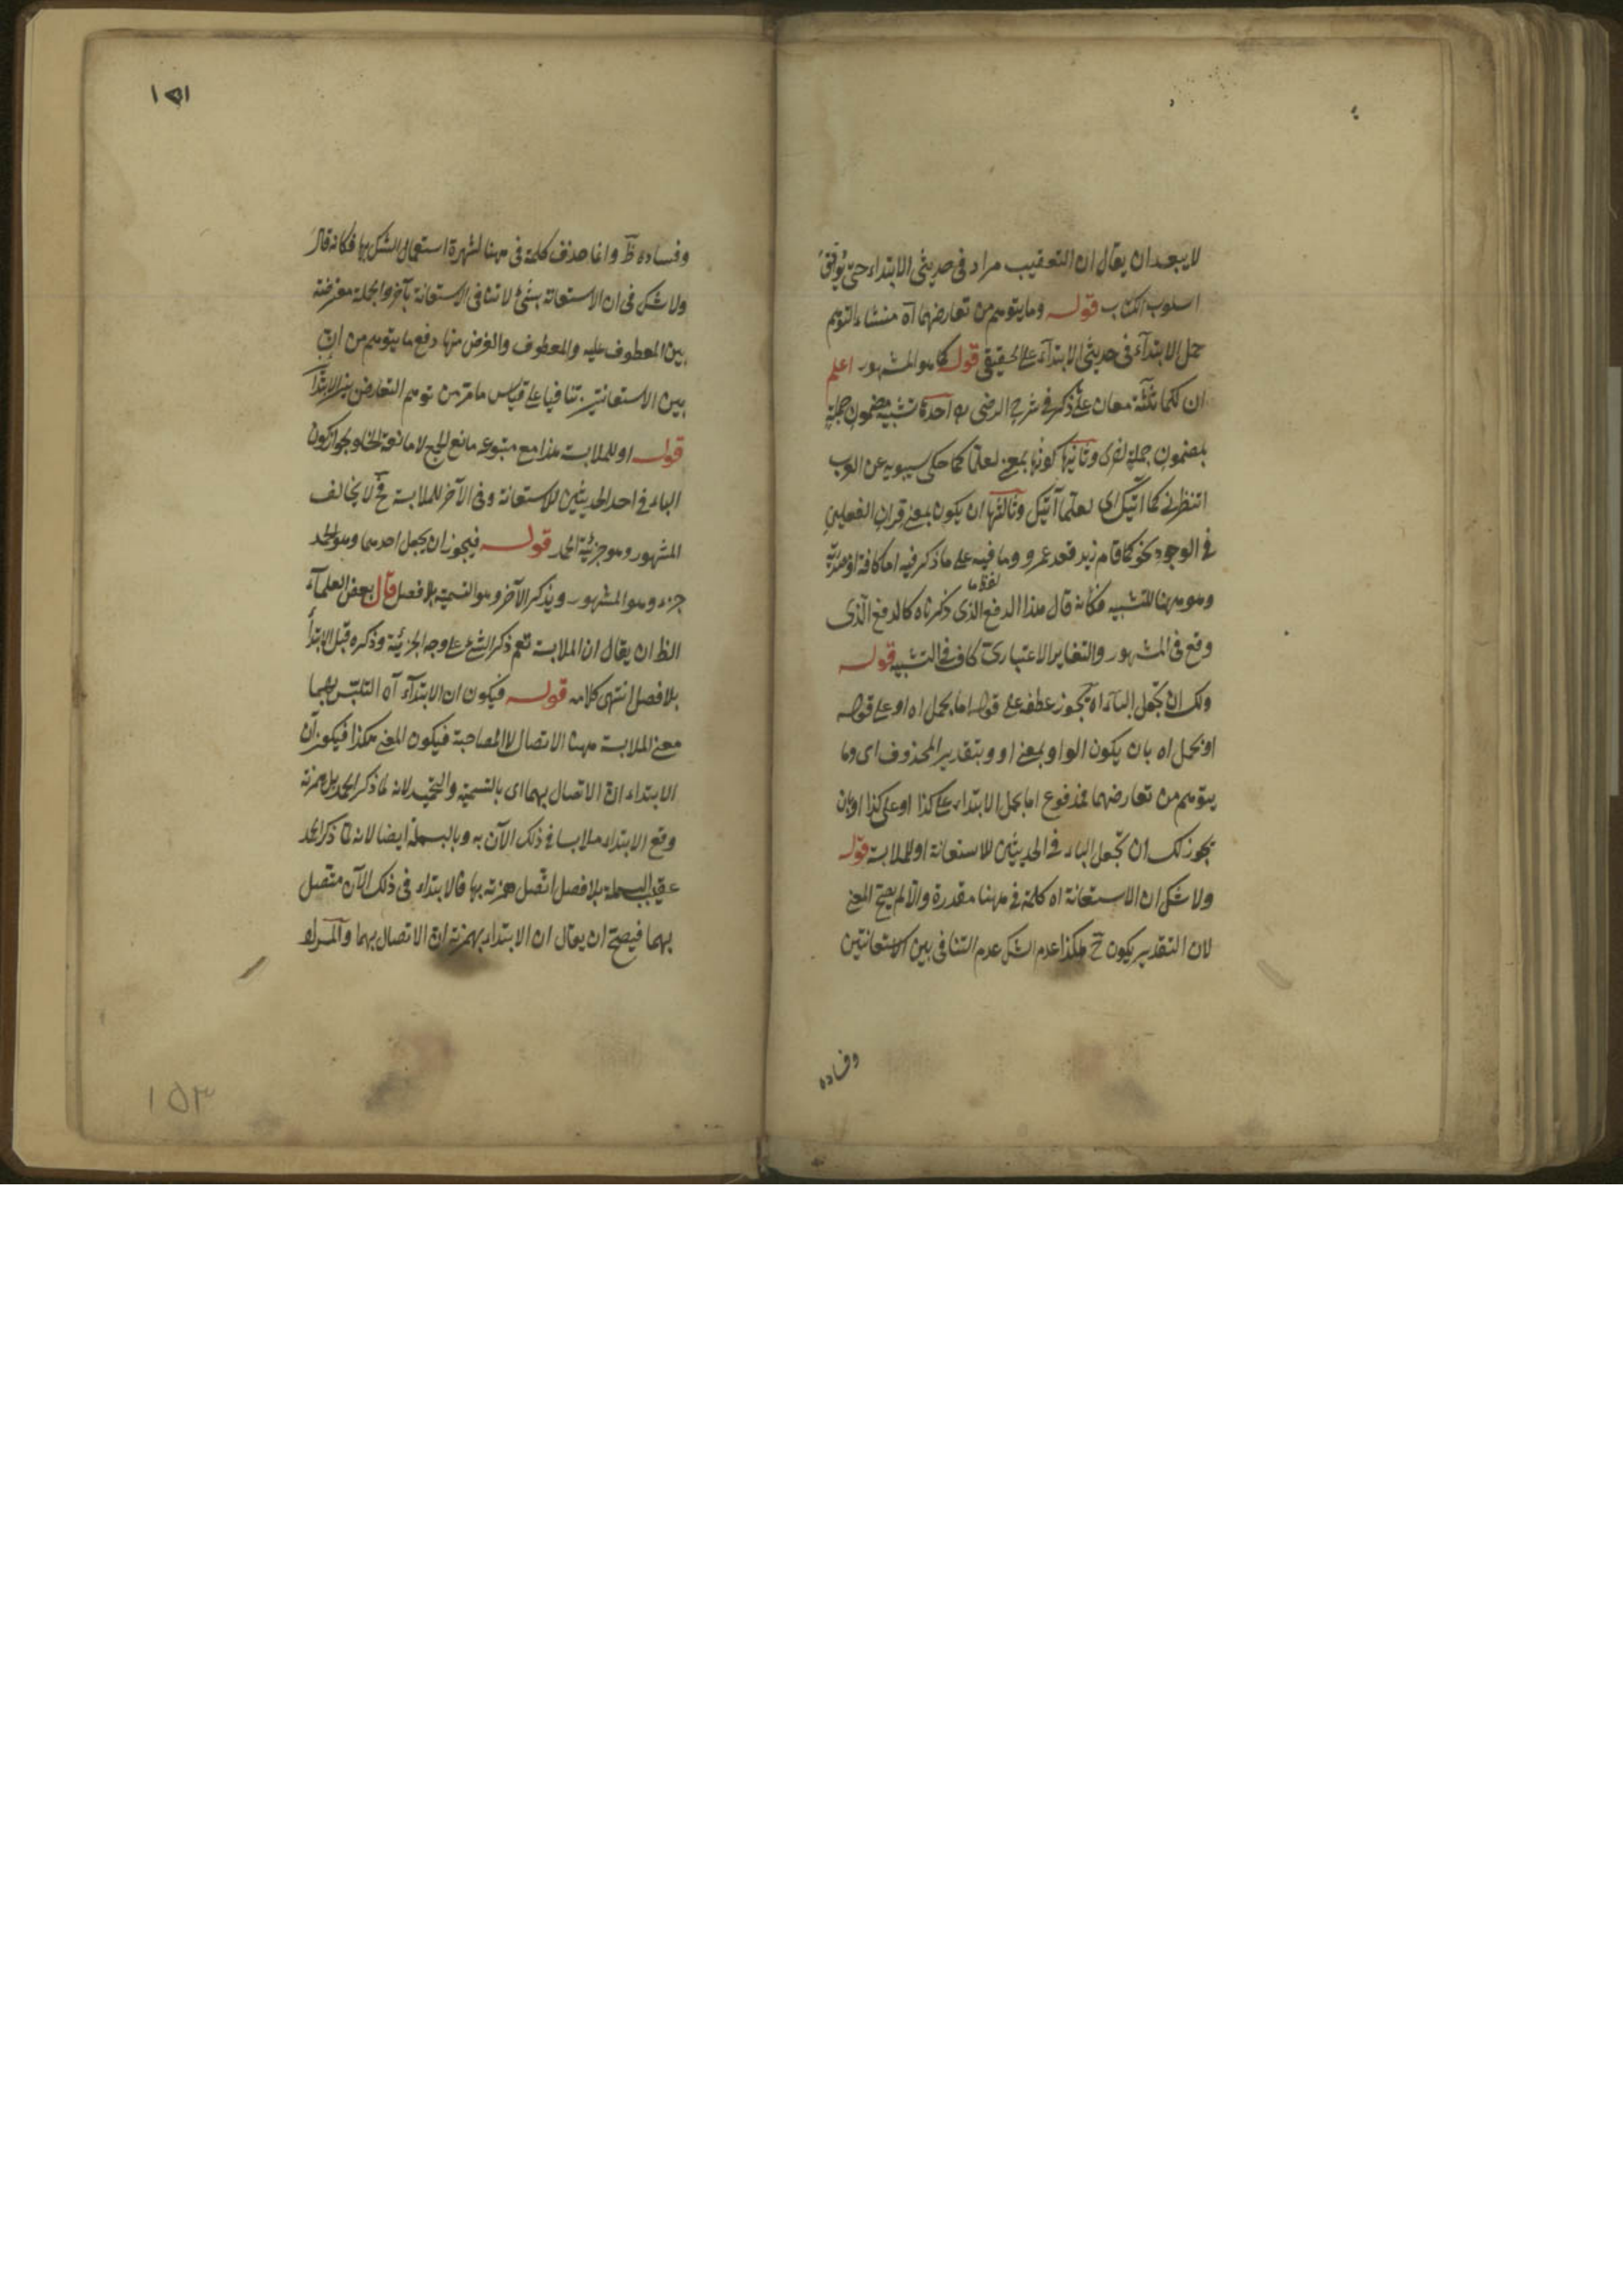 لا يبعد ان يقال ان التعقيب مراد فى حديثى الابتداء حتى يوفق
اسلوب الكتاب قوله وما يتوهم من تعارضهما آه منشاء التوهم
حمل الابتدآء فى حديثى الابتدآء على الحقيقى قوله كما هو المشهور اعلم
ان لكما ثلثة معان على ذكر فى شرح الرضى احدها تشبيه مضمون جملة
بمضمون جملة اخرى وثانيها كونها بمعنى لعلما كما حكى سيبويه عن العرب
انتظرنى كما آتيك اى لعلما آتيك وثالثها ان يكون بمعنى قران الفعلين
فى الوجود نحو كما قام زيد قعد عمرو وما فيه على ما ذكر فيه اما كافة او مصدرية
وهو ههنا للتشبيه فكانه قال هذا الدفع الذى ذكرناه كالدفع الذى
وقع فى المشهور والتغاير الاعتبارى كاف فى التشبيه قوله
ولك ان تجعل الباء اه يجوز عطفه على قوله اما بحمل اه او على قوله
او بحمل اه بان يكون الواو بمعنى او وبتقدير المحذوف اى وما
يتوهم من تعارضهما مدفوع اما بحمل الابتداء على كذا او على كذا او بان
يجوز لك ان تجعل الباء فى الحديثين للاستعانة او للملابسة قوله
ولا شك ان الاستعانة اه كلمة فى ههنا مقدرة والا لم يصح المعنى
لان التقدير يكون ح هكذا عدم الشك عدم التنافى بين الاستعانتين
وفساده
١٥١
وفساده ظ وانما حذف كلمة فى ههنا لشهرة استعمال الشك بها فكانه قال
ولا شك فى ان الاستعانة بشئ لا تنافى الاستعانة بآخر والجملة معترضة
بين المعطوف عليه والمعطوف والغرض منها دفع ما يتوهم من ان
بين الاستعانتين تنافيا على قياس ما مر من توهم التعارض بين الابتدآ
قوله او للملابسة هذا مع متبوعه مانع الجمع لا مانعة الخلو لجواز كون
الباء فى احد الحديثين للاستعانة وفى الآخر للملابسة ح لا يخالف
المشهور وهو جزئية الحمد قوله فيجوز ان يجعل احدهما وهو الحمد
جزء وهو المشهور ويذكر الآخر وهو التسمية بلا فصل قال بعض العلمآء
الظ ان يقال ان الملابسة تعم ذكر الشئ على وجه الجزئية وذكره قبل الابتدآ
بلا فصل انتهى كلامه قوله فيكون ان الابتدآء آه التلبس بهما
معنى الملابسة ههنا الاتصال لا المصاحبة فيكون المعنى هكذا فيكون آن
الابتداء ان الاتصال بهما اى بالتسمية والتحميد لانه لما ذكر الحمد بل همزته
وقع الابتداء ملابسا فى ذلك الآن به وبالبسملة ايضا لانه لما ذكر الحمد
عقيب البسملة بلا فصل اتصل همزته بها فالابتداء فى ذلك الآن متصل
بهما فيصح ان يقال ان الابتداء بهمزته ان الاتصال بهما والمراد
١٥٣